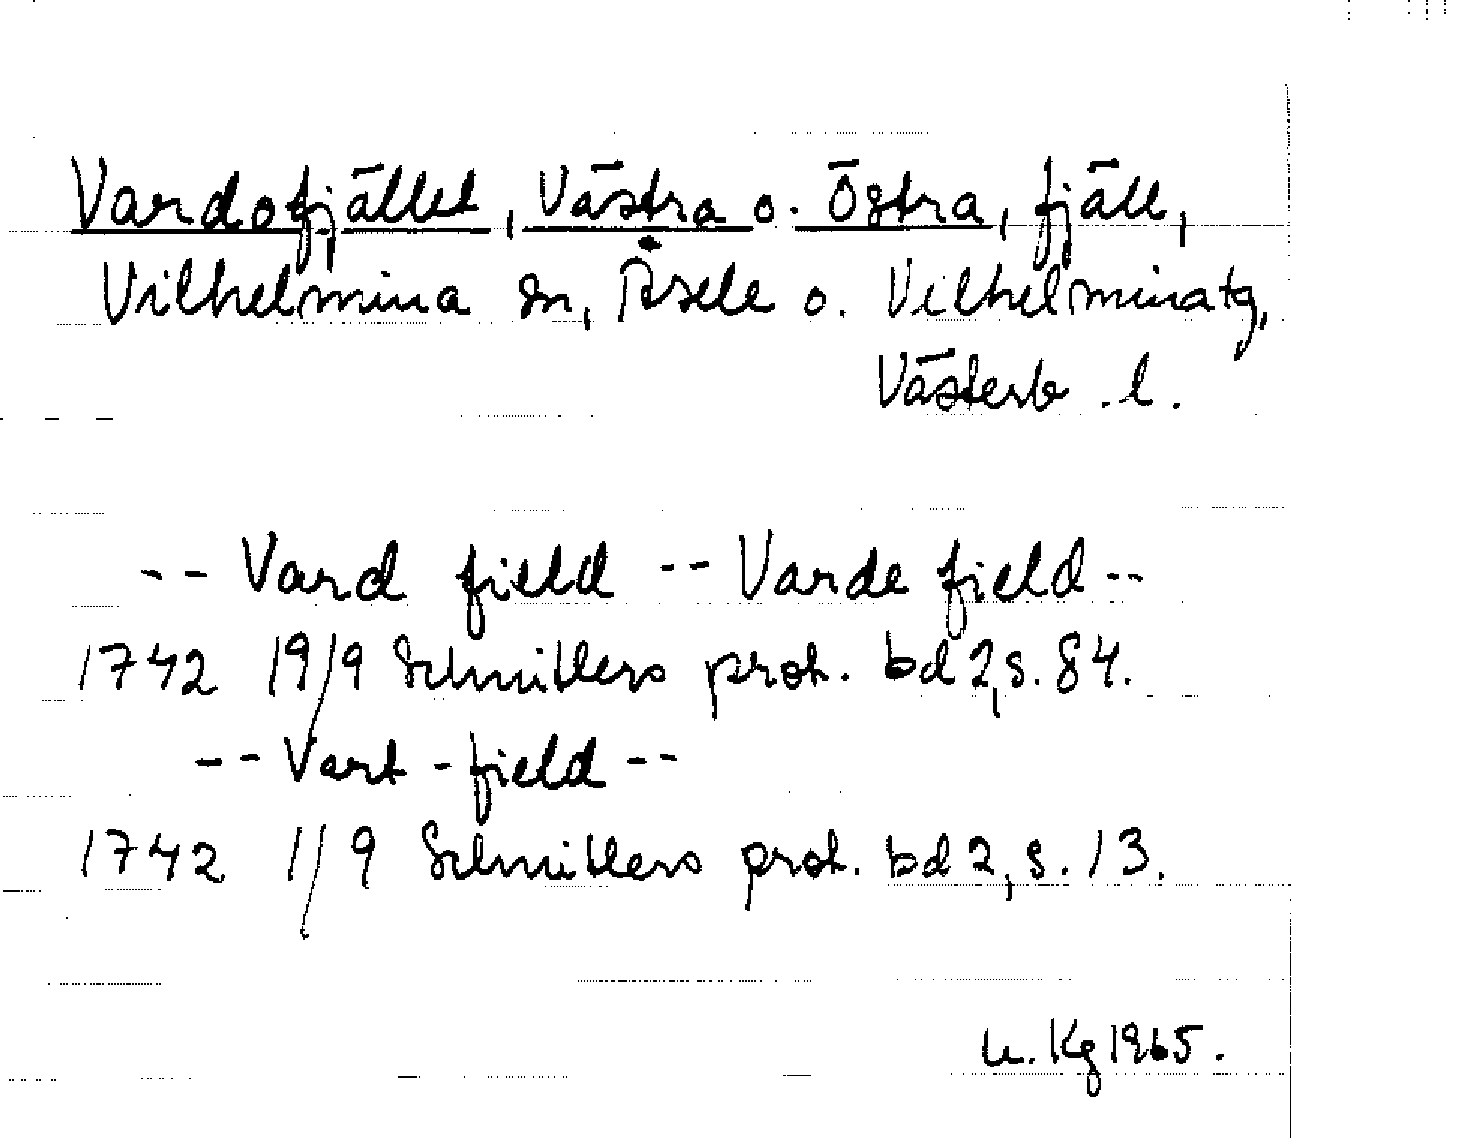 Vardofjället, Västra o. Östra, fjäll,
Vilhelmina sn, Åsele o. Vilhelminatg,
Västerb.l.
-- Vard field -- Varde field --
1742 19/9 Schnitlers prot. bd 2, s. 84.
-- Vart-field --
1742 1/9 Schnitlers prot. bd 2, s. 13.
u. Kg 1965.